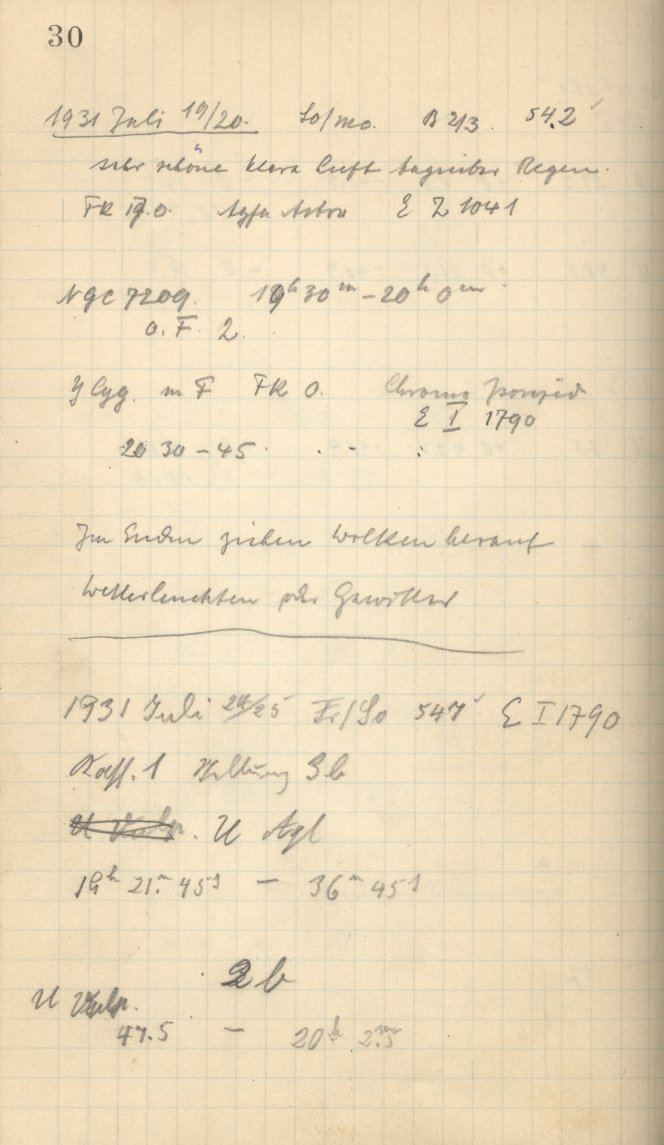 30
1931 Juli 19/20. So/Mo. B 2/3. 54.2
sehr schöne klare Luft Regen.
FR 17.0. Agfa Astro E Z 1041
NGC 7209. 19h 30m – 20h 0m
o. F. 2.
Y Cyg. m F FR 0. Chromo
E I 1790
20 30 – 45
Im Süden ziehen Wolken herauf
Wetterleuchten oder Gewitter
1931 Juli 24/25 Fr/So 547 E I 1790
Koeff. 1 3b
U Vulp. U Aql
19h 21m 45s – 36m 45s
2b
U Vulp.
47.5 – 20h 2.5m